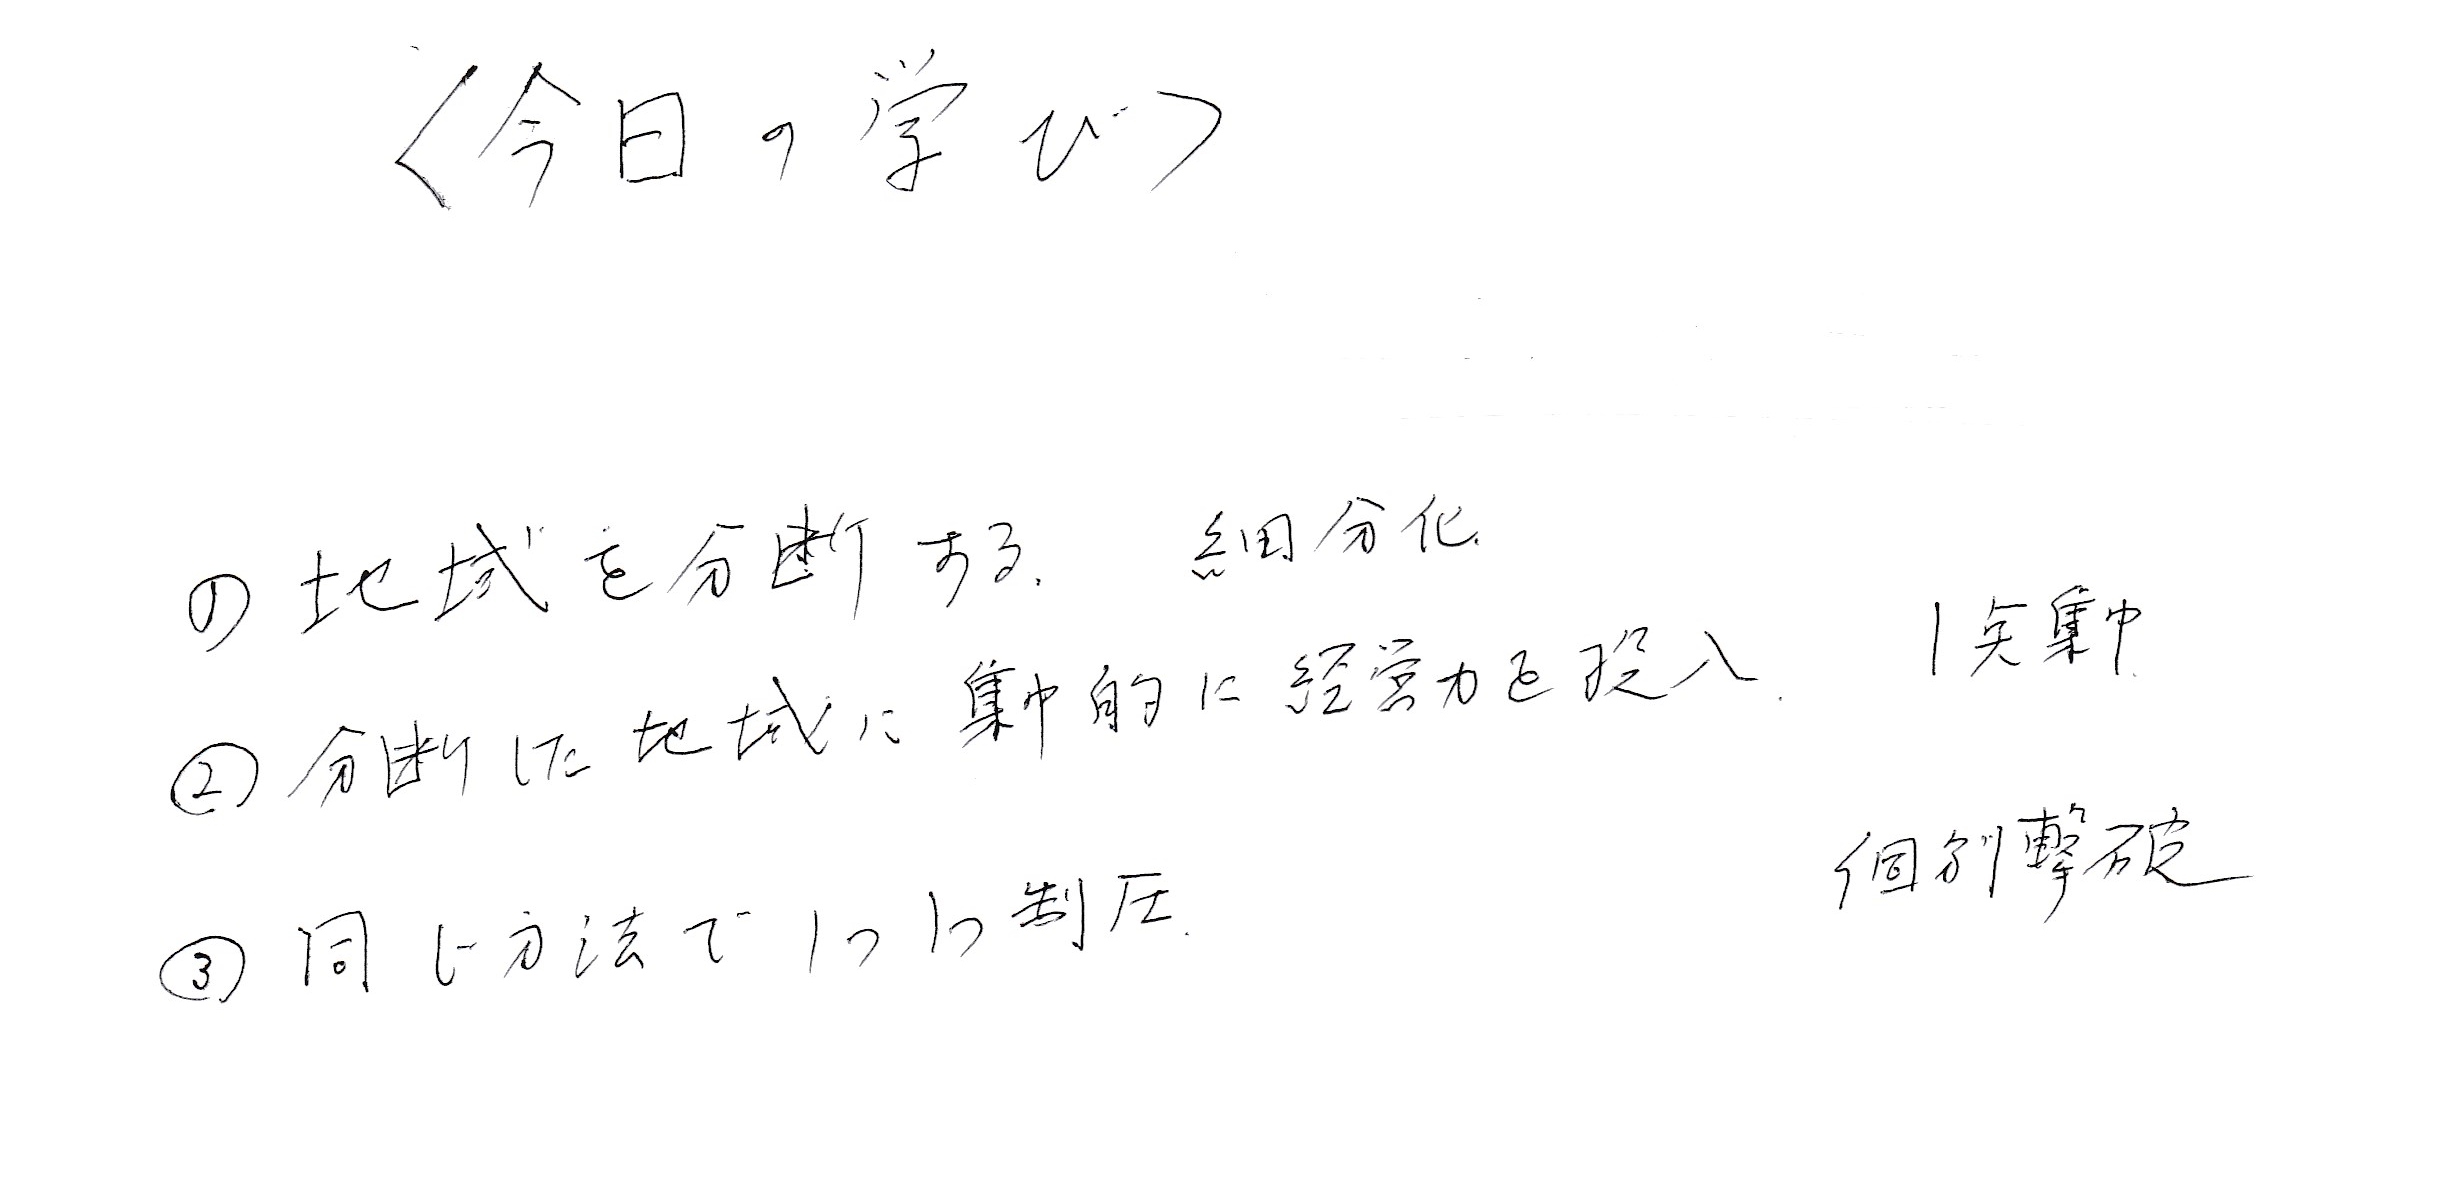 〈今日の学び〉
① 地域を分断する. 細分化.
② 分断した地域に集中的に経営力を投入. 1点集中.
③ 同じ方法で1つ1つ制圧. 個別撃破